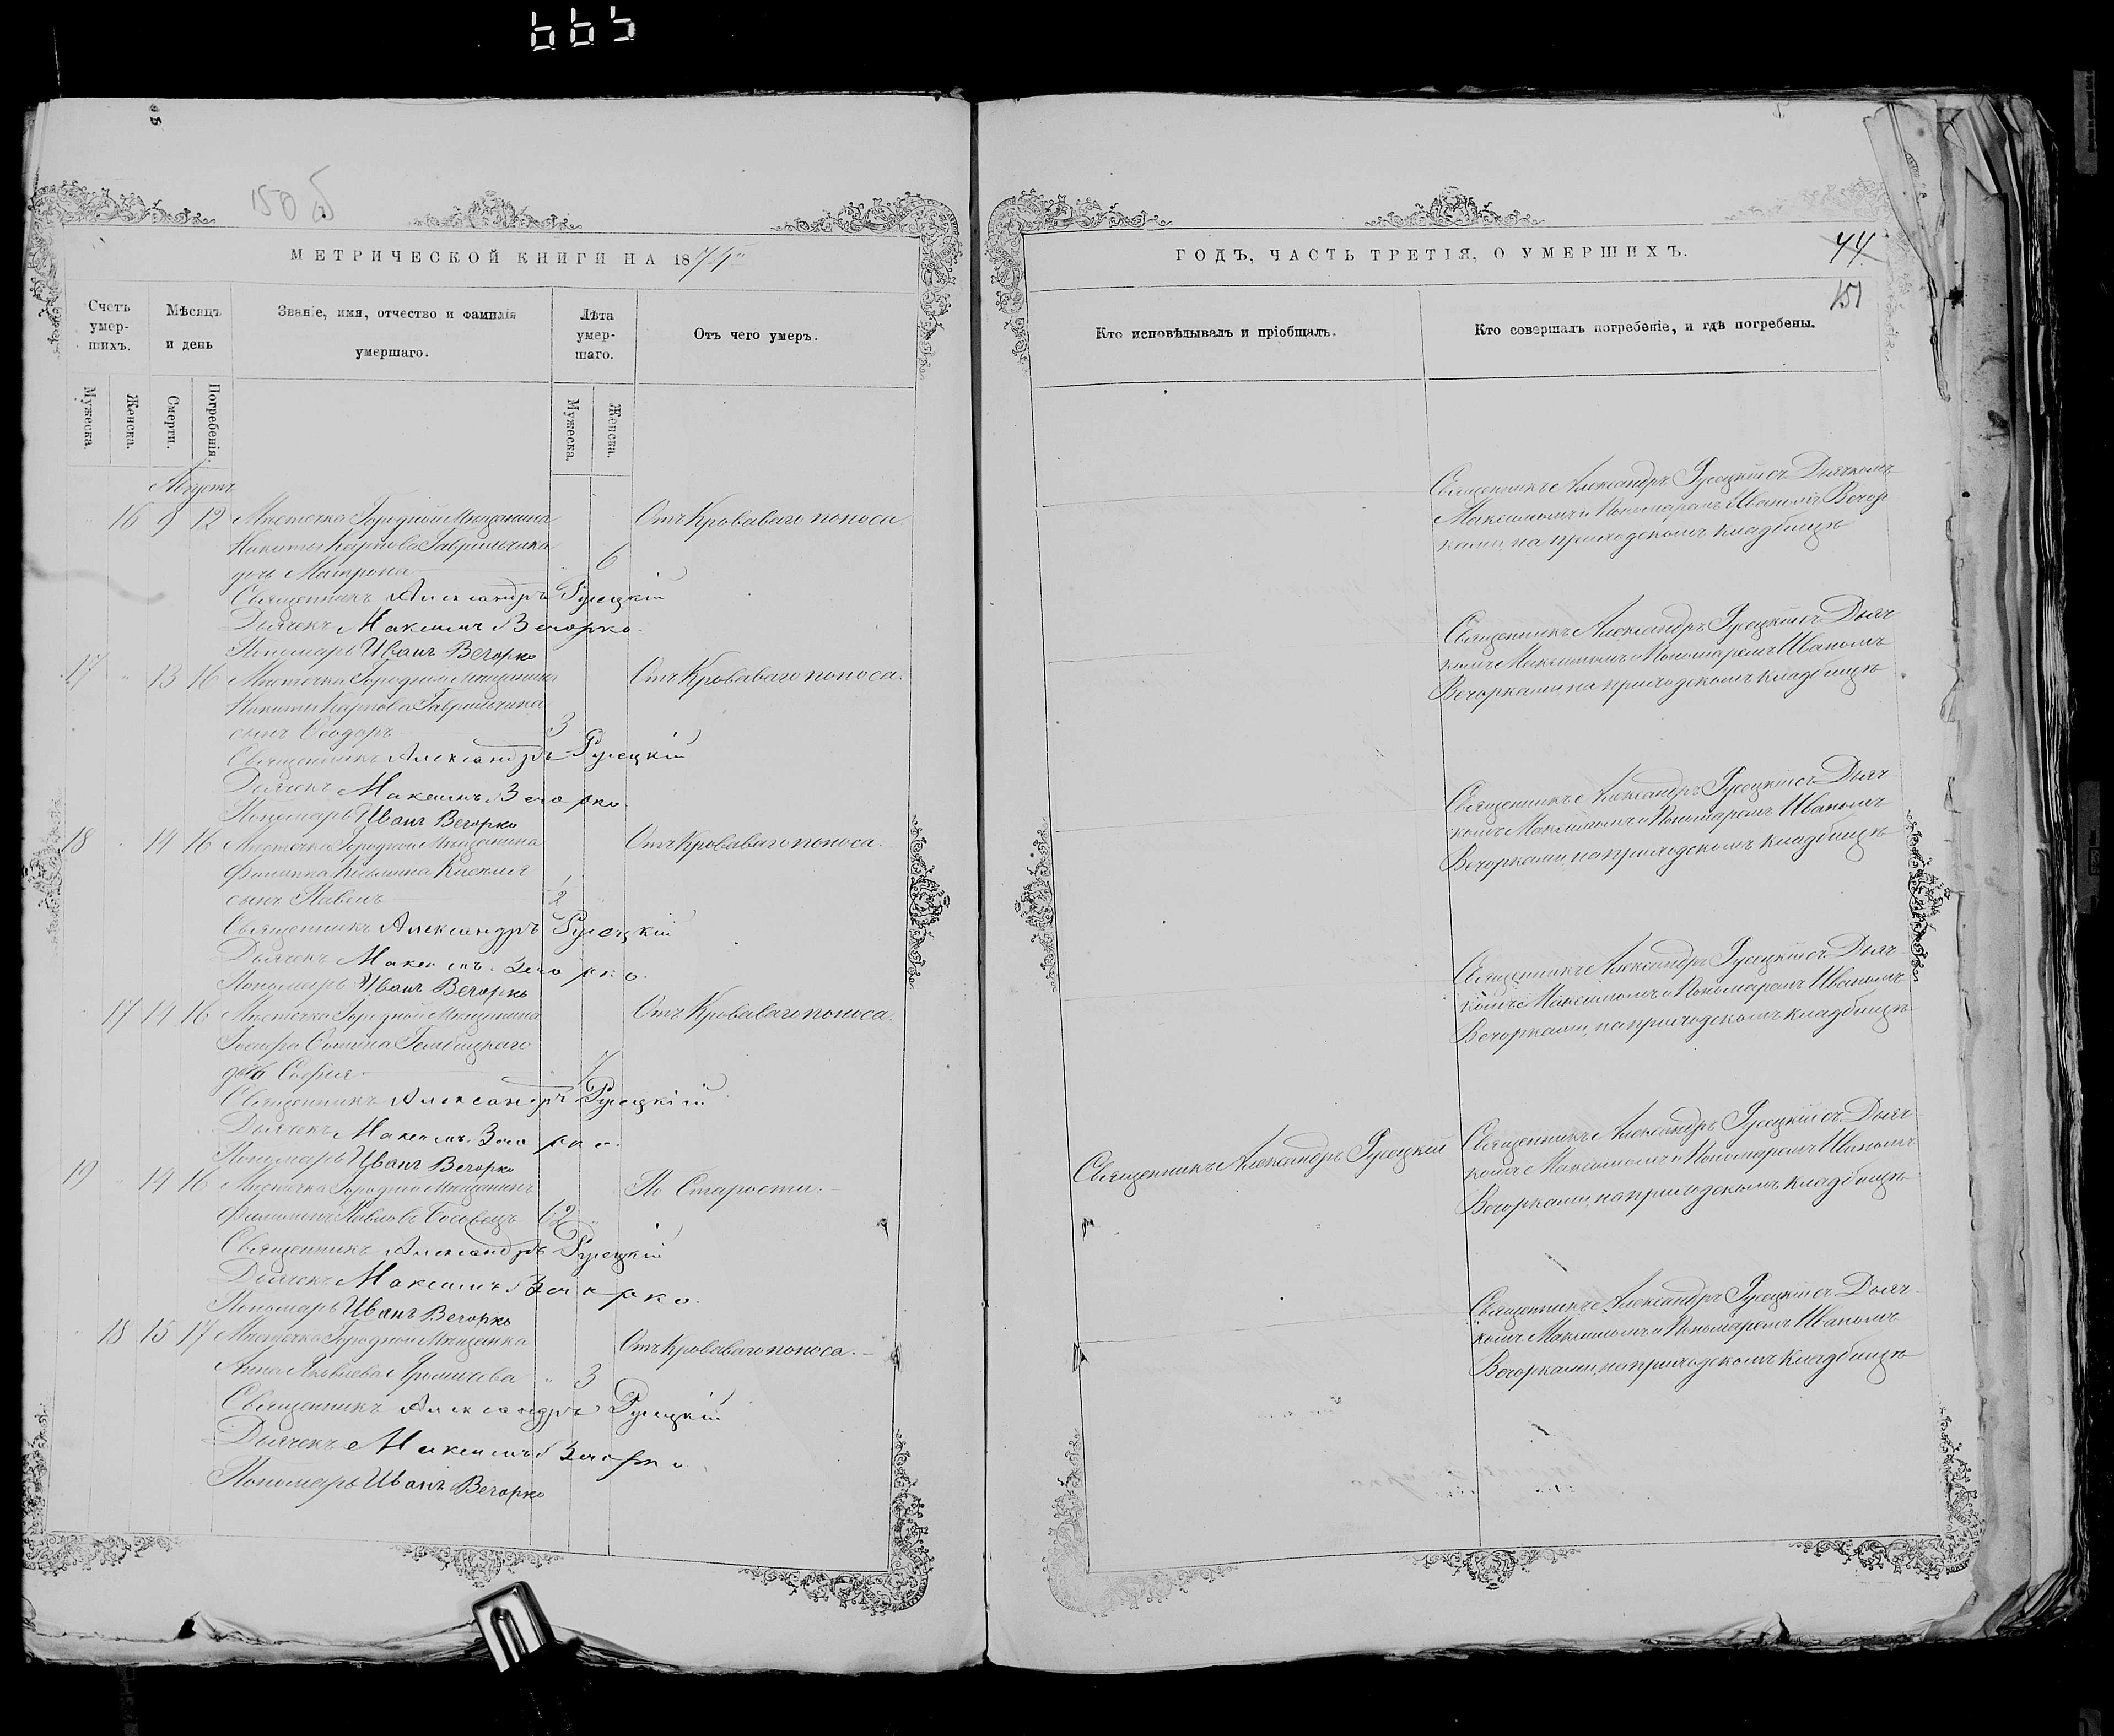 665
150 об
МЕТРИЧЕСКОЙ КНИГИ НА 1875
Счетъ умер-шихъ.
Мѣсяцъ и день
Званіе, имя, отчество и фамилія умершаго.
Лѣта умер-шаго.
Отъ чего умеръ.
Мужеска.
Женска.
Смерти.
Погребенія.
Мужеска.
Женска.
Августъ
16 9 12 Мѣстечка Городной Мѣщанина Отъ Кроваваго поноса.
Никиты Карпова Гаврильчика
дочь Матрона 6
Священникъ Александръ Русецкій
Дьячекъ Максимъ Вечорко.
Пономарь Иванъ Вечорко
17 " 13 16 Мѣстечка Городной Мѣщанина Отъ Кроваваго поноса.
Никиты Карпова Гаврильчика
сынъ Ѳеодоръ 3
Священникъ Александръ Русецкій
Дьячекъ Максимъ Вечорко.
Пономарь Иванъ Вечорко
18 14 16 Мѣстечка Городной Мѣщанина Отъ Кроваваго поноса.
сынъ Павелъ 1/2
Священникъ Александръ Русецкій
Дьячекъ Максимъ Вечорко.
Пономарь Иванъ Вечорко
17 14 16 Мѣстечка Городной Мѣщанина Отъ Кроваваго поноса.
дочь Софія 7
Священникъ Александръ Русецкій
Дьячекъ Максимъ Вечорко.
Пономарь Иванъ Вечорко
19 14 16 Мѣстечка Городной Мѣщанинъ По Старости.
Филимонъ Павловъ 62
Священникъ Александръ Русецкій
Дьячекъ Максимъ Вечорко.
Пономарь Иванъ Вечорко
18 15 17 Мѣстечка Городной Мѣщанка Отъ Кроваваго поноса.
Анна Яковлева " 3
Священникъ Александръ Русецкій
Дьячекъ Максимъ Вечорко.
Пономарь Иванъ Вечорко
ГОДЪ, ЧАСТЬ ТРЕТІЯ, О УМЕРШИХЪ.
44
151
Кто исповѣдывалъ и пріобщалъ.
Кто совершалъ погребеніе, и гдѣ погребены.
Священникъ Александръ Русецкій съ Дьячкомъ
Максимомъ и Пономаремъ Иваномъ Вечор
ками, на приходскомъ кладбищѣ
Священникъ Александръ Русецкій съ Дьяч
комъ Максимомъ и Пономаремъ Иваномъ
Вечорками на приходскомъ кладбищѣ
Священникъ Александръ Русецкій съ Дьяч
комъ Максимомъ и Пономаремъ Иваномъ
Вечорками, на приходскомъ кладбищѣ
Священникъ Александръ Русецкій съ Дьяч
комъ Максимомъ и Пономаремъ Иваномъ
Вечорками, на приходскомъ кладбищѣ
Священникъ Александръ Русецкій
Священникъ Александръ Русецкій съ Дьяч
комъ Максимомъ и Пономаремъ Иваномъ
Вечорками, на приходскомъ кладбищѣ
Священникъ Александръ Русецкій съ Дьяч
комъ Максимомъ и Пономаремъ Иваномъ
Вечорками, на приходскомъ кладбищѣ